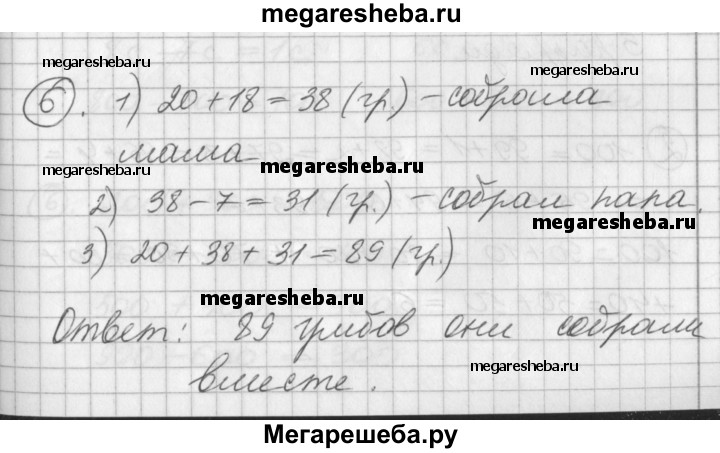 megaresheba.ru
megaresheba.ru
megaresheba.ru
6. 1) 20+18=38 (гр.) – собрала
мама
megaresheba.ru
megaresheba.ru
2) 38-7=31 (гр.) – собрал папа.
megaresheba.ru
3) 20+38+31=89 (гр.)
megaresheba.ru
Ответ: 89 грибов они собрали
megaresheba.ru
вместе.
Мегарешеба.ру